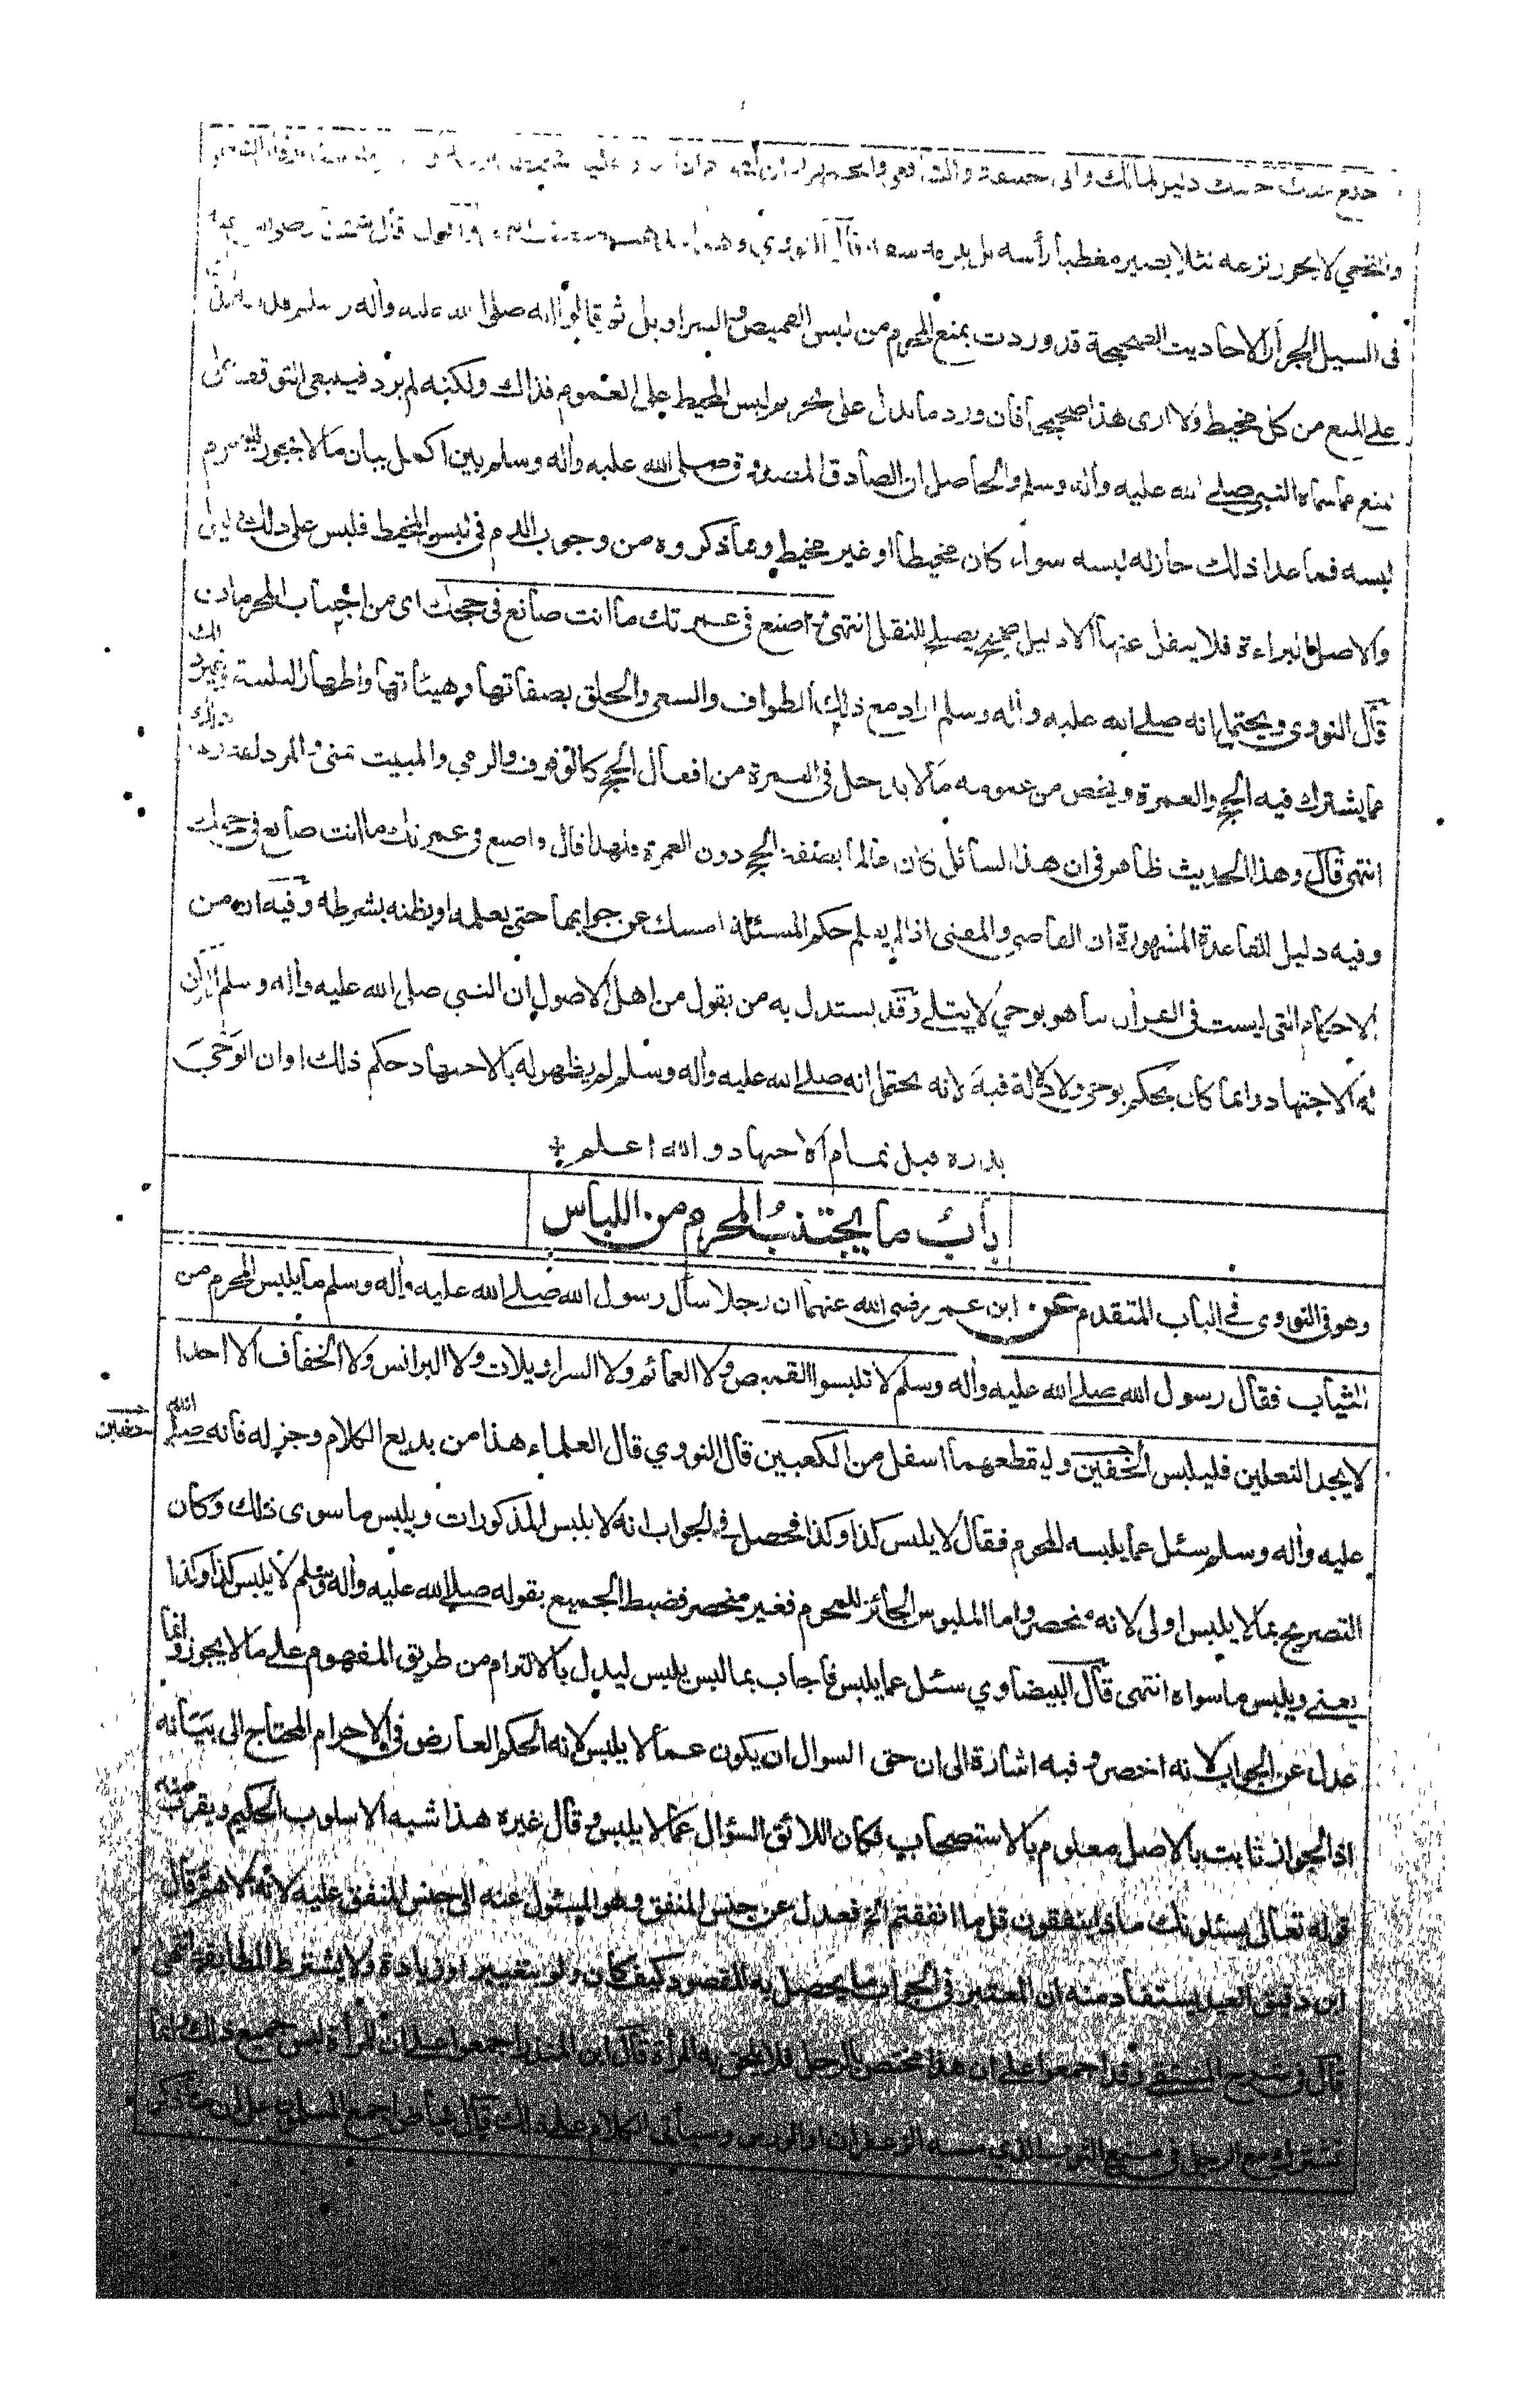 دليل لمالك وابي حنيفة والشافعي والجمهور ان
والنخعي لا يجوز نزعه لئلا يصير مغطيا رأسه بل يلزمه قال النووي وهذا اقول قال شيخنا رضي الله عنه
في السيل الجرار الاحاديث الصحيحة قد وردت بمنع المحرم من لبس القميص والسراويل ثم قالوا انه صلى الله عليه واله وسلم
على المنع من كل مخيط ولا ارى هذا صحيحا فان ورد ما يدل على تحريم لبس المخيط على العموم فذاك ولكنه لم يرد فينبغي التوقف على
المنع مما سماه النبي صلى الله عليه واله وسلم والحاصل ان الصادق المصدوق صلى الله عليه واله وسلم بين اكمل بيان ما لا يجوز للمحرم
لبسه فما عدا ذلك جاز له لبسه سواء كان مخيطا او غير مخيط وما ذكروه من وجوب الدم في لبس المخيط فليس على ذلك دليل
والاصل البراءة فلا ينقل عنها الا دليل صحيح يصلح للنقل انتهى واصنع في عمرتك ما انت صانع في حجك اي من اجتناب المحرمات
قال النووي ويحتمل انه صلى الله عليه واله وسلم اراد مع ذلك الطواف والسعي والحلق بصفاتها وهيئاتها واظهار التلبية وغير ذلك
مما يشترك فيه الحج والعمرة ويخص من عمومه ما لا يدخل في العمرة من افعال الحج كالوقوف والرمي والمبيت بمنى والمزدلفة وغير ذلك
انتهى قال وهذا الحديث ظاهر في ان هذا السائل كان عالما بصفة الحج دون العمرة ولهذا قال واصنع في عمرتك ما انت صانع في حجك
وفيه دليل للقاعدة المشهورة ان القاضي والمفتي اذا لم يعلم حكم المسئلة امسك عن جوابها حتى يعلمه او يظنه بشرطه وفيه ان من
الاحكام التي ليست في القران ما هو بوحي لا يتلى وقد يستدل به من يقول من اهل الاصول ان النبي صلى الله عليه واله وسلم لم يكن
له الاجتهاد وانما كان يحكم بوحي ولا دلالة فيه لانه يحتمل انه صلى الله عليه واله وسلم لم يظهر له بالاجتهاد حكم ذلك او ان الوحي
بدره قبل تمام الاجتهاد والله اعلم +
باب ما يجتنب المحرم من اللباس
وهو في النووي في الباب المتقدم عن ابن عمر رضي الله عنهما ان رجلا سأل رسول الله صلى الله عليه واله وسلم ما يلبس المحرم من
الثياب فقال رسول الله صلى الله عليه واله وسلم لا تلبسوا القمص ولا العمائم ولا السراويلات ولا البرانس ولا الخفاف الا احدا
لا يجد النعلين فليلبس الخفين وليقطعهما اسفل من الكعبين قال النووي قال العلماء هذا من بديع الكلام وجزله فانه صلى الله
عليه واله وسلم سئل عما يلبسه المحرم فقال لا يلبس كذا وكذا فحصل في الجواب انه لا يلبس المذكورات ويلبس ما سوى ذلك وكان
التصريح بما لا يلبس اولى لانه منحصر واما الملبوس الجائز للمحرم فغير منحصر فضبط الجميع بقوله صلى الله عليه واله وسلم لا يلبس كذا وكذا
يعني ويلبس ما سواه انتهى قال البيضاوي سئل عما يلبس فاجاب بما ليس يلبس ليدل بالالتزام من طريق المفهوم على ما لا يجوز وانما
عدل عن الجواب لانه اخصر وفيه اشارة الى ان حق السوال ان يكون عما لا يلبس لانه الحكم العارض في الاحرام المحتاج الى بيانه
اذ الجواز ثابت بالاصل معلوم بالاستصحاب فكان اللائق السؤال عما لا يلبس وقال غيره هذا شبه الاسلوب الحكيم ويقرب منه
قوله تعالى يسئلونك ماذا ينفقون قل ما انفقتم الخ فعدل عن جنس المنفق وهو المسئول عنه الى جنس المنفق عليه لانه الاهم وقال
ابن دقيق العيد يستفاد منه ان المعتبر في الجواب ما يحصل به المقصود كيف كان ولو بتغيير او زيادة ولا يشترط المطابقة انتهى
قال في شرح المنتقى وقد اجمعوا على ان هذا مختص بالرجل فلا يلحق به المرأة قال ابن المنذر اجمعوا على ان للمرأة لبس جميع ذلك وانما
تشترك مع الرجل في منع الثوب الذي مسه الزعفران او الورس وسيأتي الكلام على ذلك قال عياض اجمع المسلمون على ان ما ذكر